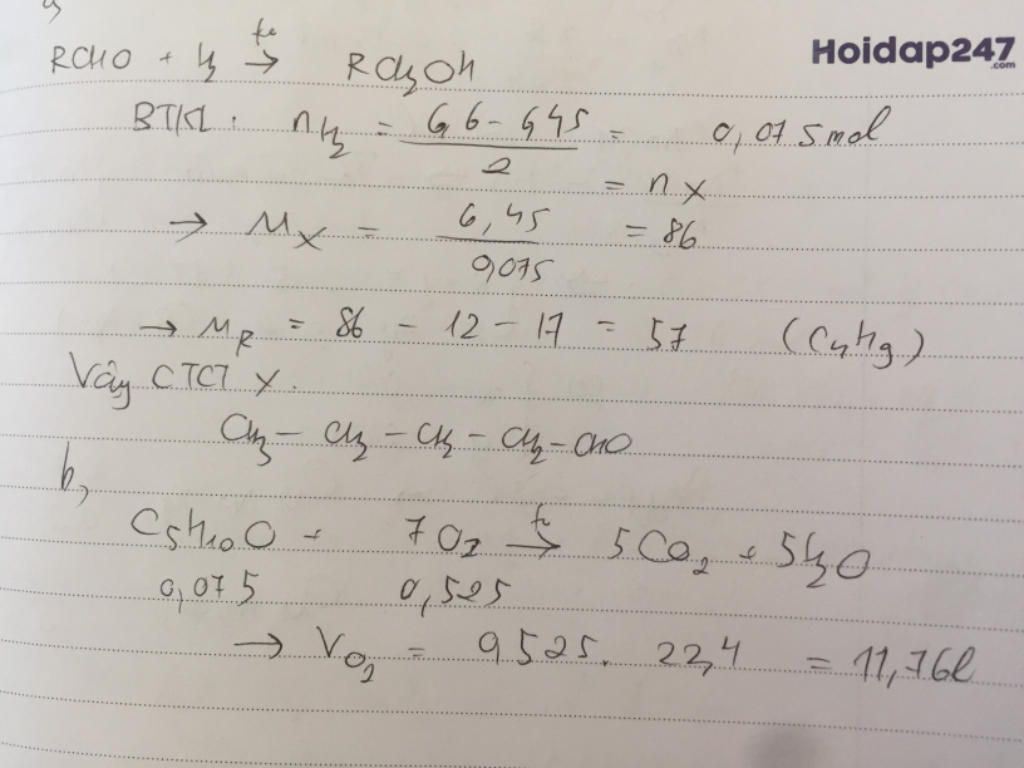 a,
Hoidap247
.com
RCHO + H2 t° → RCH2OH
BTKL: nH2 = 6,6 - 6,45 / 2 = 0,075 mol
= nX
→ MX = 6,45 / 0,075 = 86
→ MR = 86 - 12 - 17 = 57 (C4H9)
Vậy CTCT X.
CH3 - CH2 - CH2 - CH2 - CHO
b,
C5H10O + 7O2 t° → 5CO2 + 5H2O
0,075 0,525
→ VO2 = 0,525. 22,4 = 11,76l